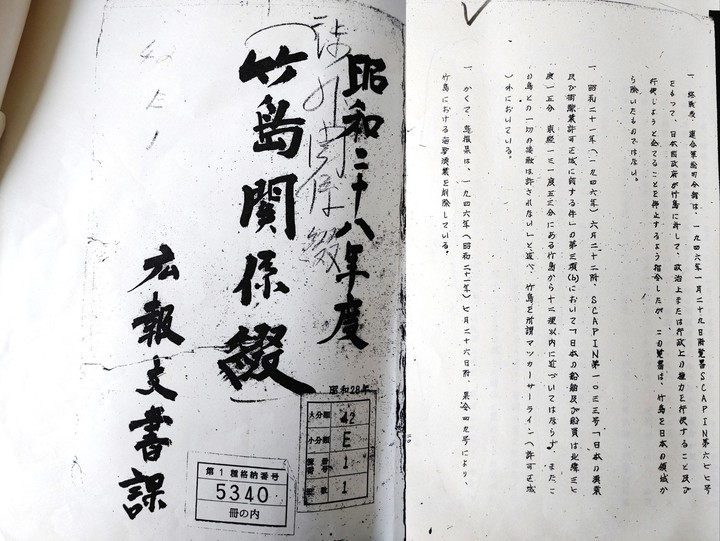 昭和二十八年度
渉外関係綴
(竹島関係綴)
広報文書課
42
E
1
昭和28年
大分類 42
小分類 E
1
1
第1種格納番号
5340
冊の内
一 終戦後、連合軍総司令部は、一九四六年一月二十九日附覚書SCAPIN第六七七号
をもつて、日本国政府が竹島に対して、政治上または行政上の権力を行使すること及び
行使しようと企てることを停止するよう指令したが、この覚書は、竹島を日本の領域か
ら除いたものではない。
一 昭和二十一年(一九四六年)六月二十二附、SCAPIN第一〇三三号「日本の漁業
及び捕鯨業許可区域に関する件」の第三項(b)において「日本の船舶及び船員は北緯三七
度一五分 東経一三一度五三分にある竹島から十二哩以内に近づいてはならず、またこ
の島との一切の接触は許されない」と述べ、竹島を所謂マッカーサーライン(許可区域
)外においている。
一 かくて、島根県は、一九四六年(昭和二十一年)七月二十六日附、県令四九号により、
竹島における海驢漁業を削除している。